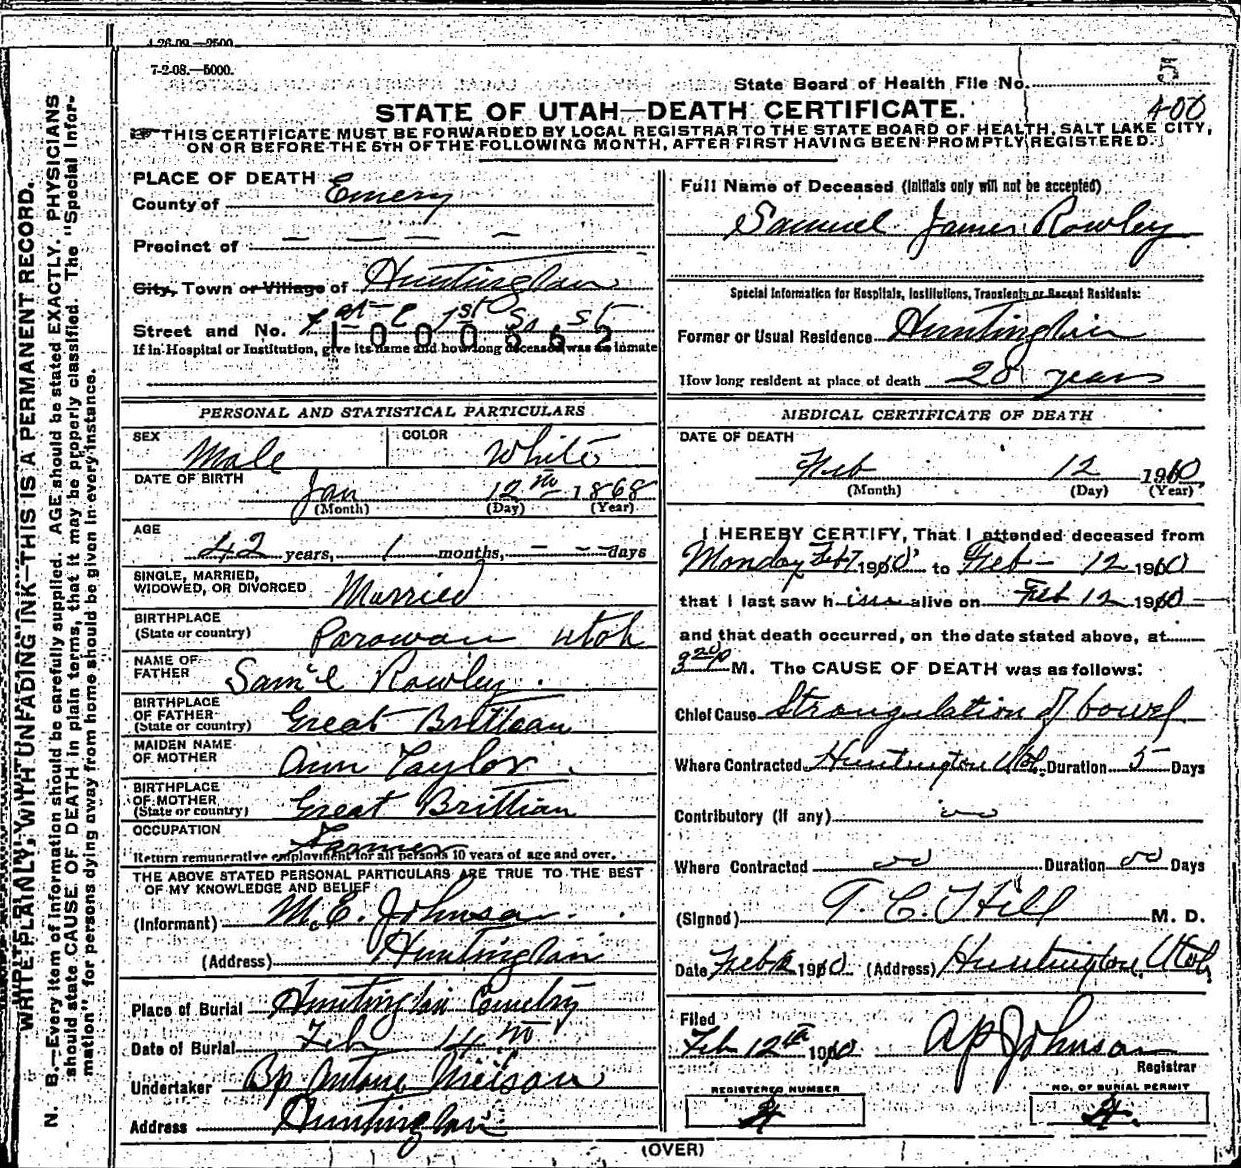 4-26-09.—2500.
7-2-08.—5000.
State Board of Health File No. 5
406
STATE OF UTAH—DEATH CERTIFICATE.
THIS CERTIFICATE MUST BE FORWARDED BY LOCAL REGISTRAR TO THE STATE BOARD OF HEALTH, SALT LAKE CITY,
ON OR BEFORE THE 5TH OF THE FOLLOWING MONTH, AFTER FIRST HAVING BEEN PROMPTLY REGISTERED.
WRITE PLAINLY, WITH UNFADING INK—THIS IS A PERMANENT RECORD.
N. B.—Every item of information should be carefully supplied. AGE should be stated EXACTLY. PHYSICIANS
should state CAUSE OF DEATH in plain terms, that it may be properly classified. The "Special Infor-
mation" for persons dying away from home should be given in every instance.
PLACE OF DEATH
County of Emery
Precinct of — — — —
City, Town or Village of Huntington
Street and No. 1st So St
1000562
If in Hospital or Institution, give its name and how long deceased was an inmate
PERSONAL AND STATISTICAL PARTICULARS
SEX Male COLOR White
DATE OF BIRTH Jan 12th 1868
(Month) (Day) (Year)
AGE 42 years, 1 months, — — — days
SINGLE, MARRIED,
WIDOWED, OR DIVORCED Married
BIRTHPLACE
(State or country) Parowan Utah
NAME OF
FATHER Sam'l Rowley
BIRTHPLACE
OF FATHER
(State or country) Great Brittian
MAIDEN NAME
OF MOTHER Ann Taylor
BIRTHPLACE
OF MOTHER
(State or country) Great Brittian
OCCUPATION Farmer
Return remunerative employment for all persons 10 years of age and over.
THE ABOVE STATED PERSONAL PARTICULARS ARE TRUE TO THE BEST
OF MY KNOWLEDGE AND BELIEF
(Informant) M. E. Johnson
(Address) Huntington
Place of Burial Huntington Cemetry
Date of Burial Feb 14th
Undertaker Bp Antone Nielson
Address Huntington
Full Name of Deceased (Initials only will not be accepted)
Samuel James Rowley
Special Information for Hospitals, Institutions, Transients or Recent Residents:
Former or Usual Residence Huntington
How long resident at place of death 28 years
MEDICAL CERTIFICATE OF DEATH
DATE OF DEATH
Feb 12 1910
(Month) (Day) (Year)
I HEREBY CERTIFY, That I attended deceased from
Monday Feb 7 1910 to Feb — 12 1910
that I last saw h im alive on Feb 12 1910
and that death occurred, on the date stated above, at
3 20 P M. The CAUSE OF DEATH was as follows:
Chief Cause Strangulation of bowel
Where Contracted Huntington Utah Duration 5 Days
Contributory (if any)
Where Contracted Duration Days
(Signed) T. C. Hill M. D.
Date Feb 12 1910 (Address) Huntington, Utah
Filed
Feb 12th 1910 A P Johnson
Registrar
REGISTERED NUMBER
4
NO. OF BURIAL PERMIT
4.
(OVER)